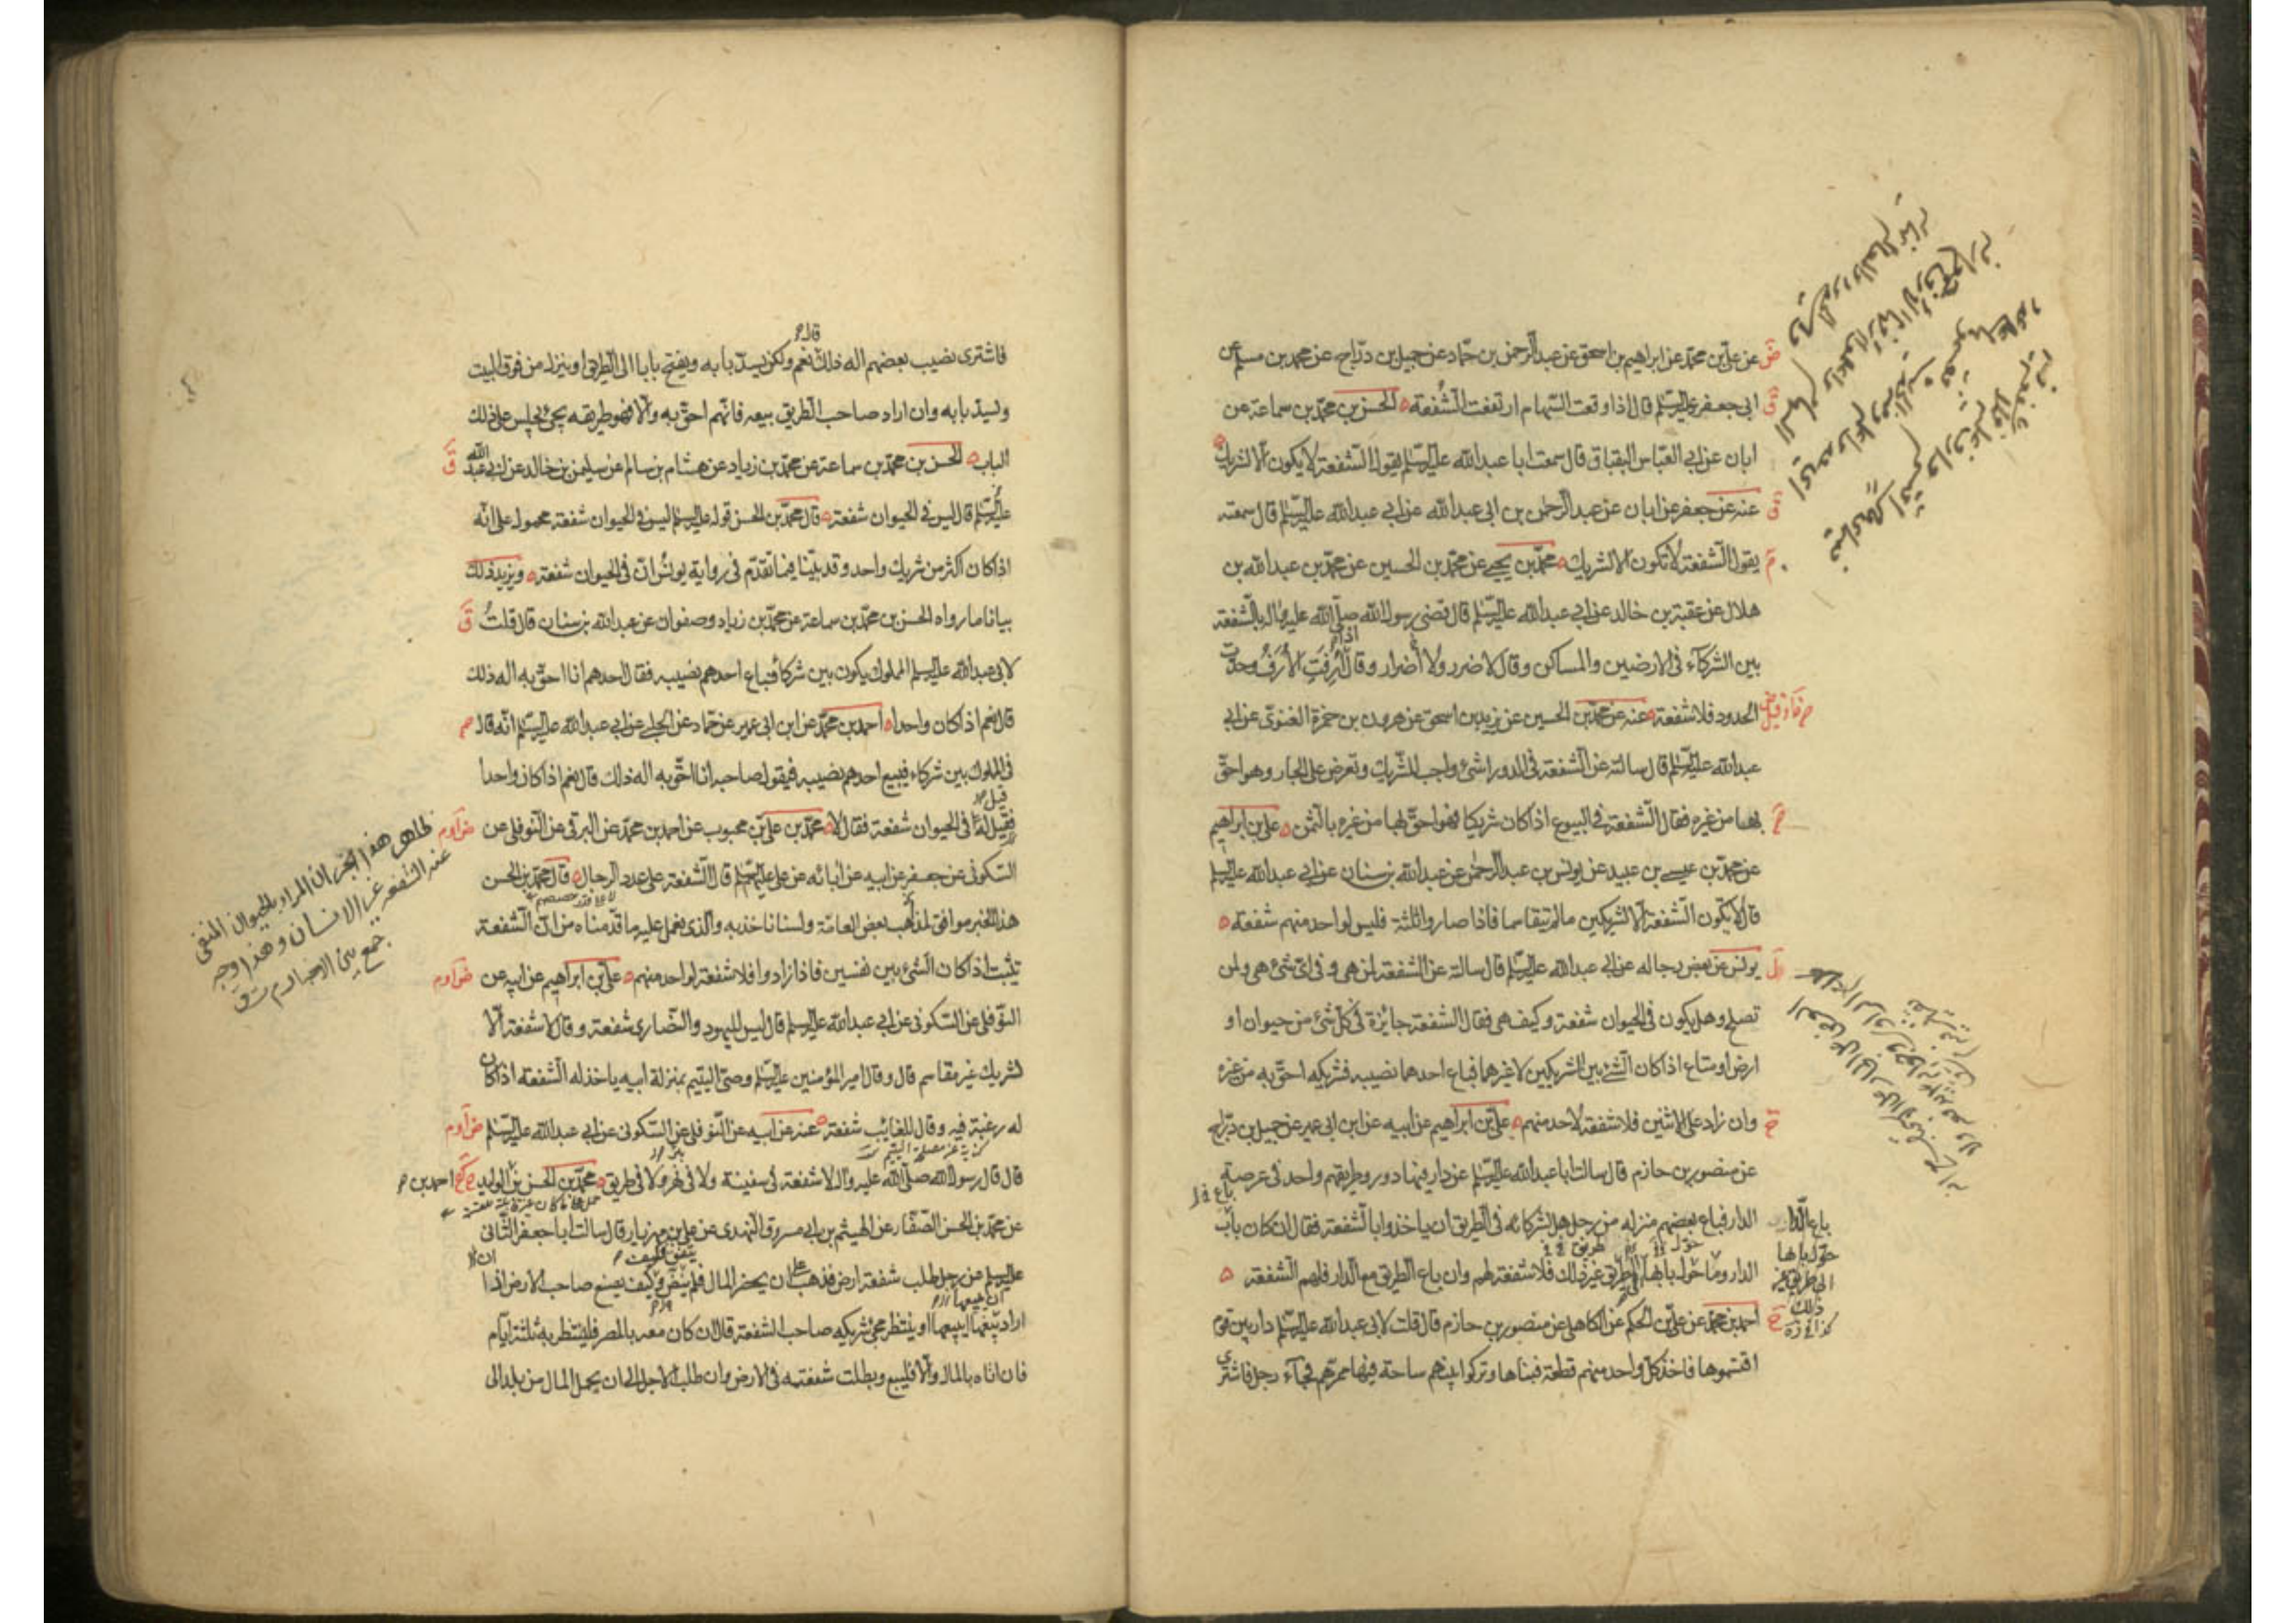 عن علي بن محمد عن ابراهيم بن اسحق عن عبد الرحمن بن حماد عن جميل بن دراج عن محمد بن مسلم عن
ابي جعفر عليه السلم قال اذا وقعت السهام ارتفعت الشفعة الحسن بن محمد بن سماعة عن
ابان عن ابي العباس البقباق قال سمعت ابا عبد الله عليه السلم يقول الشفعة لا يكون الا لشريك
عنه عن جعفر عن ابان عن عبد الرحمن بن ابي عبد الله عن ابي عبد الله عليه السلم قال سمعته
يقول الشفعة لا تكون الا لشريك محمد بن يحيى عن محمد بن الحسين عن محمد بن عبد الله بن
هلال عن عقبة بن خالد عن ابي عبد الله عليه السلم قال قضى رسول الله صلى الله عليه واله بالشفعة
بين الشركاء في الارضين والمساكن وقال لا ضرر ولا اضرار وقال اذا ارفت الارف وحدت
الحدود فلا شفعة عنه عن محمد بن الحسين عن يزيد بن اسحق عن هرون بن حمزة الغنوي عن ابي
عبد الله عليه السلم قال سالته عن الشفعة في الدور اشئ واجب للشريك وتعرض على الجار وهو احق
بها من غيره فقال الشفعة في البيوع اذا كان شريكا فهو احق لها من غيره بالثمن علي بن ابراهيم
عن محمد بن عيسى بن عبيد عن يونس بن عبد الرحمن عن عبد الله بن سنان عن ابي عبد الله عليه السلم
قال لا يكون الشفعة الا لشريكين ما لم يتقاسما فاذا صاروا ثلثة فليس لواحد منهم شفعة
يونس عن بعض رجاله عن ابي عبد الله عليه السلم قال سالته عن الشفعة لمن هي وفي اي شئ هي ولمن
تصلح وهل يكون في الحيوان شفعة وكيف هي فقال الشفعة جائزة في كل شئ من حيوان او
ارض او متاع اذا كان الشئ بين الشريكين لا غيرهما فباع احدهما نصيبه فشريكه احق به من غيره
وان زاد على الاثنين فلا شفعة لاحد منهم علي بن ابراهيم عن ابيه عن ابن ابي عمير عن جميل بن دراج
عن منصور بن حازم قال سالت ابا عبد الله عليه السلم عن دار فيها دور وطريقهم واحد في عرصة
الدار فباع بعضهم منزله من رجل هل لشركائه في الطريق ان ياخذوا بالشفعة فقال ان كان باب
الدار وما حول بابها الى طريق غير ذلك فلا شفعة لهم وان باع الطريق مع الدار فلهم الشفعة
احمد بن محمد عن علي بن الحكم عن الكاهلي عن منصور بن حازم قال قلت لابي عبد الله عليه السلم دار بين قوم
اقتسموها فاخذ كل واحد منهم قطعة فبناها وتركوا بينهم ساحة فيها ممرهم فجاء رجل فاشترى
باع الدار
حول بابها
الى طريق غير
ذلك
فاشترى نصيب بعضهم اله ذلك قال نعم ولكن يسد بابه ويفتح بابا الى الطريق او ينزل من فوق البيت
وليسد بابه وان اراد صاحب الطريق بيعه فانهم احق به والا فهو طريقه يجئ يجلس على ذلك
الباب الحسن بن محمد بن سماعة عن محمد بن زياد عن هشام بن سالم عن سليمن بن خالد عن ابي عبد الله
عليه السلم قال ليس في الحيوان شفعة قال محمد بن الحسن قوله عليه السلم ليس في الحيوان شفعة محمول على انه
اذا كان اكثر من شريك واحد وقد بينا فيما تقدم في رواية يونس ان في الحيوان شفعة ويزيد ذلك
بيانا ما رواه الحسن بن محمد بن سماعة عن محمد بن زياد وصفوان عن عبد الله بن سنان قال قلت
لابي عبد الله عليه السلم المملوك يكون بين شركاء فباع احدهم نصيبه فقال احدهم انا احق به اله ذلك
قال نعم اذا كان واحدا احمد بن محمد عن ابن ابي عمير عن حماد عن الحلبي عن ابي عبد الله عليه السلم انه قال
في المملوك بين شركاء فيبيع احدهم نصيبه فيقول صاحبه انا احق به اله ذلك قال نعم اذا كان واحدا
فقيل له في الحيوان شفعة فقال لا محمد بن علي بن محبوب عن احمد بن محمد عن البرقي عن النوفلي عن
السكوني عن جعفر عن ابيه عن ابائه عن علي عليهم السلم قال الشفعة على عدد الرجال قال محمد بن الحسن
هذا الخبر موافق لمذهب بعض العامة ولسنا ناخذ به والذي يعمل عليه ما قدمناه من ان الشفعة
تثبت اذا كان الشئ بين نفسين فاذا زادوا فلا شفعة لواحد منهم علي بن ابراهيم عن ابيه عن
النوفلي عن السكوني عن ابي عبد الله عليه السلم قال ليس لليهود والنصارى شفعة وقال لا شفعة الا
لشريك غير مقاسم قال وقال امير المؤمنين عليه السلم وصي اليتيم بمنزلة ابيه ياخذ له الشفعة اذا كان
له رغبة فيه وقال للغايب شفعة عنه عن ابيه عن النوفلي عن السكوني عن ابي عبد الله عليه السلم
قال قال رسول الله صلى الله عليه واله لا شفعة في سفينة ولا في نهر ولا في طريق محمد بن الحسن بن الوليد احمد بن
عن محمد بن الحسن الصفار عن الهيثم بن ابي مسروق النهدي عن علي بن مهزيار قال سالت ابا جعفر الثاني
عليه السلم عن رجل طلب شفعة ارض فذهب على ان يحضر المال فلم ينض فكيف يصنع صاحب الارض اذا
اراد بيعها ايبيعها او ينتظر مجئ شريكه صاحب الشفعة قال ان كان معه بالمصر فلينتظر به ثلثة ايام
فان اتاه بالمال والا فليبع وبطلت شفعته في الارض وان طلب الاجل الى ان يحمل المال من بلد الى
ظاهر هذا الخبر ان المراد بالحيوان المنفي
عنه الشفعة غير الانسان وهذا وجه
جمع بين الاخبار